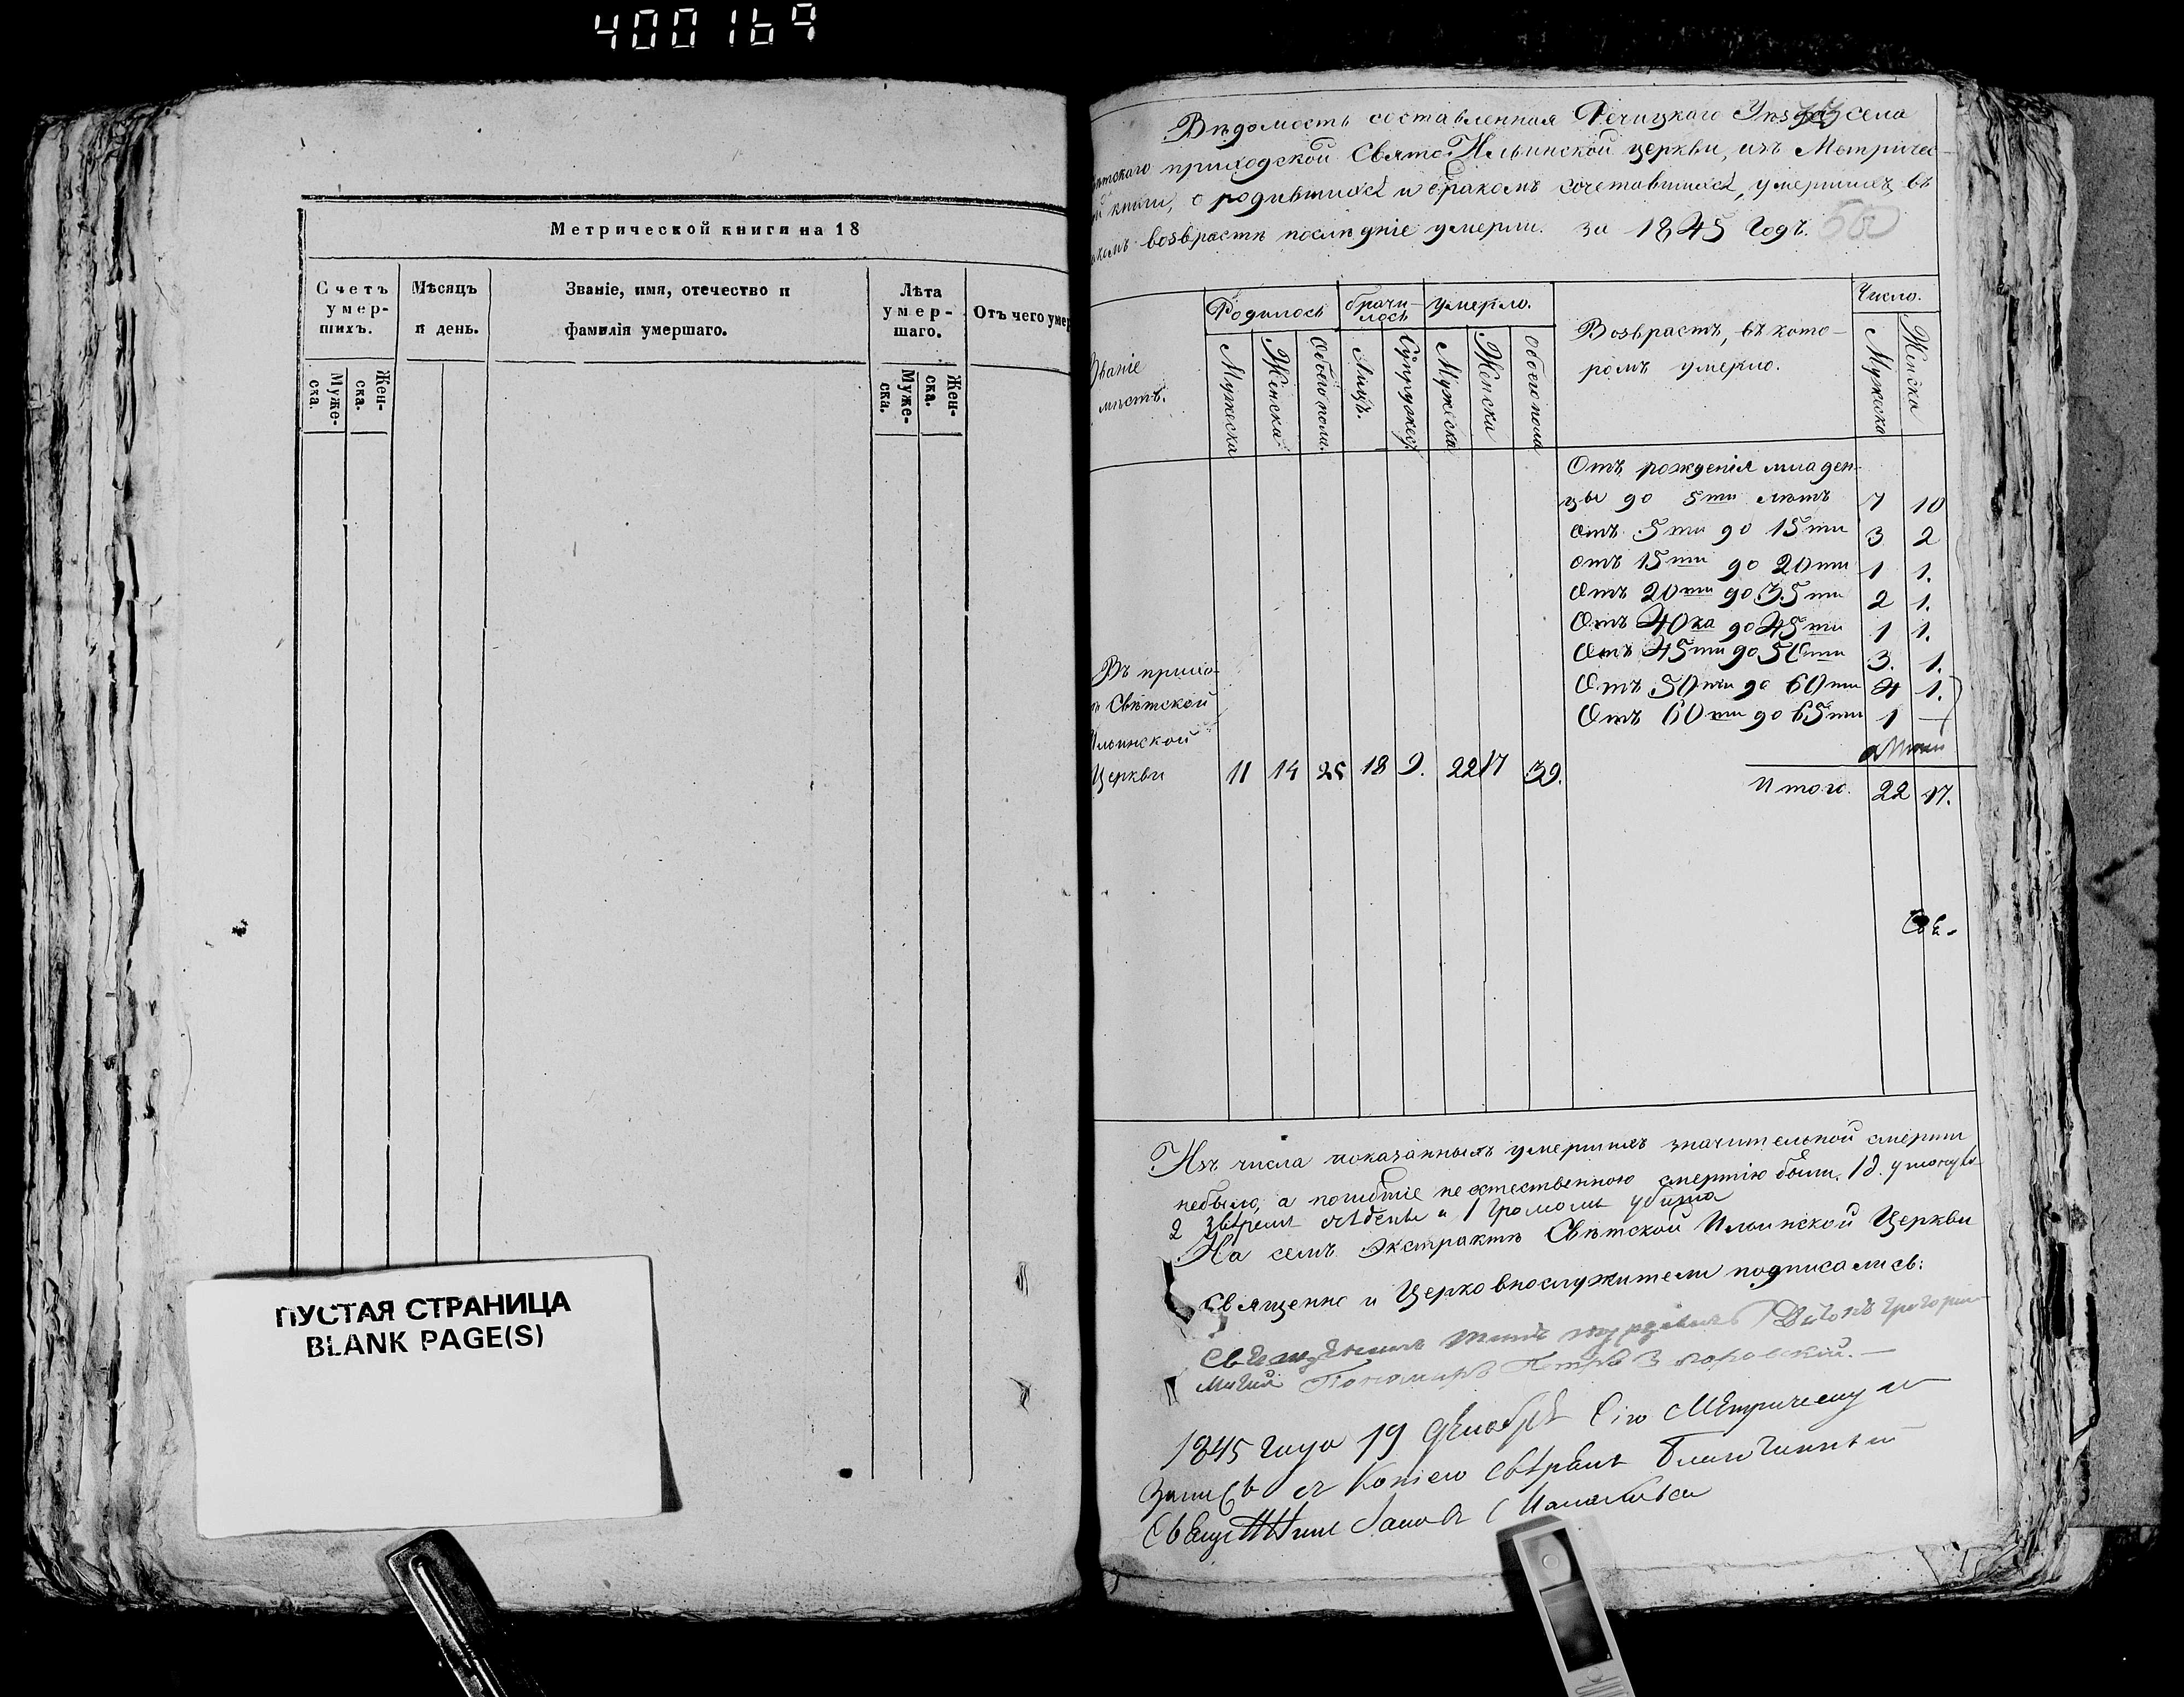 400169
Метрической книги на 18
Счетъ умер-шихъ.
Мѣсяцъ и день.
Званіе, имя, отечество и фамилія умершаго.
Лѣта умер-шаго.
Отъ чего умер
Муже-ска.
Жен-ска.
Муже-ска.
Жен-ска.
ПУСТАЯ СТРАНИЦА
BLANK PAGE(S)
Вѣдомость составленная Речицкаго Уѣзда села
приходской Свято Ильинской церкви, изъ Метричес-
книги, о родившихся и бракомъ сочетавшихся, умершихъ въ
возврастѣ послѣдніе умерли. за 1845 годъ.
Званіе мѣстъ.
Родилось
брачи-лось
умерло.
Возврастъ, въ кото-
ромъ умерло.
Число.
Мужеска
Женска
Обоего пола
Лицъ.
Супружес.
Мужеска
Женска
Обоего пола
Мужеска
Женска
Отъ рожденія младен-
цы до 5ти лѣтъ 7 10
Отъ 5ти до 15ти 3 2
отъ 15ти до 20ти 1 1.
Отъ 20ти до 35ти 2 1.
Отъ 40ка до 45ти 1 1.
Отъ 45ти до 50ти 3. 1.
Отъ 50ти до 60ти 4 1.
Отъ 60ти до 65ти 1 —
Въ прихо-
Свѣтской
Ильинской
Церкви 11 14 25 18 9. 22 17 39.
Итого. 22 17.
Изъ числа показанныхъ умершихъ значительной смерти
небыло, а погибшіе неестественною смертію были.
2 звѣремъ съѣдены и 1 громомъ убита
На семъ Экстрактѣ Свѣтской Ильинской Церкви
Священно и Церковнослужители подписались:
Пономарь Петръ
1845 года 19 декабря Сію Метрическую
Запись съ Копіею свѣрялъ Благочинный